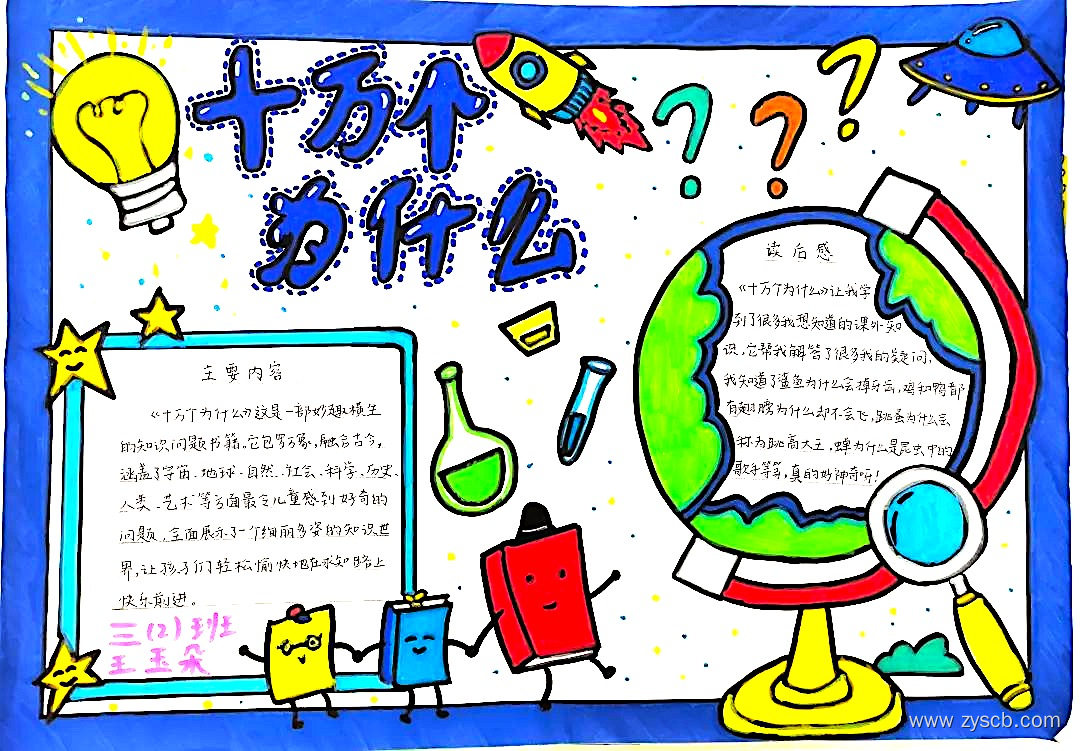 十万个
为什么
主要内容
《十万个为什么》这是一部妙趣横生
的知识问题书籍。它包罗万象，融合古今，
涵盖了宇宙、地球、自然、社会、科学、历史、
人类、艺术等方面最令儿童感到好奇的
问题，全面展示了一个绚丽多姿的知识世
界，让孩子们轻松愉快地在求知路上
快乐前进。
三(2)班
王玉朵
读后感
《十万个为什么》让我学
到了很多我想知道的课外知
识，它帮我解答了很多我的疑问，
我知道了鲨鱼为什么会掉牙齿，鸡和鸭都
有翅膀为什么却不会飞，跳蚤为什么会
称为跳高大王，蝉为什么是昆虫中的
歌手等等，真的好神奇呀！
www.zyscb.com